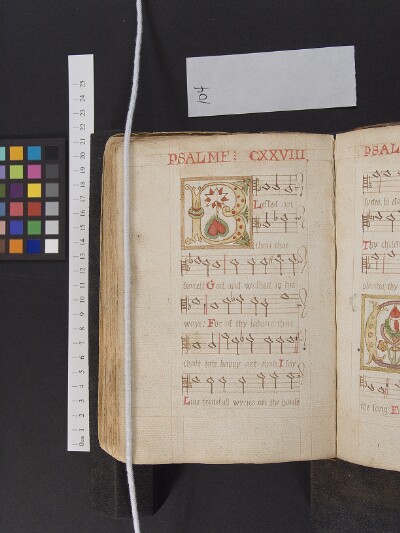 104
PSALME CXXVIII.
B
Lessed art
thou that
fearest God and walkest in his
waye: For of thy labour thou
shalt eate, happy art thou I say
Like fruitefull vynes on thy house
PSAL
Thy child
the long
0cm 1 2 3 4 5 6 7 8 9 10 11 12 13 14 15 16 17 18 19 20 21 22 23 24 25